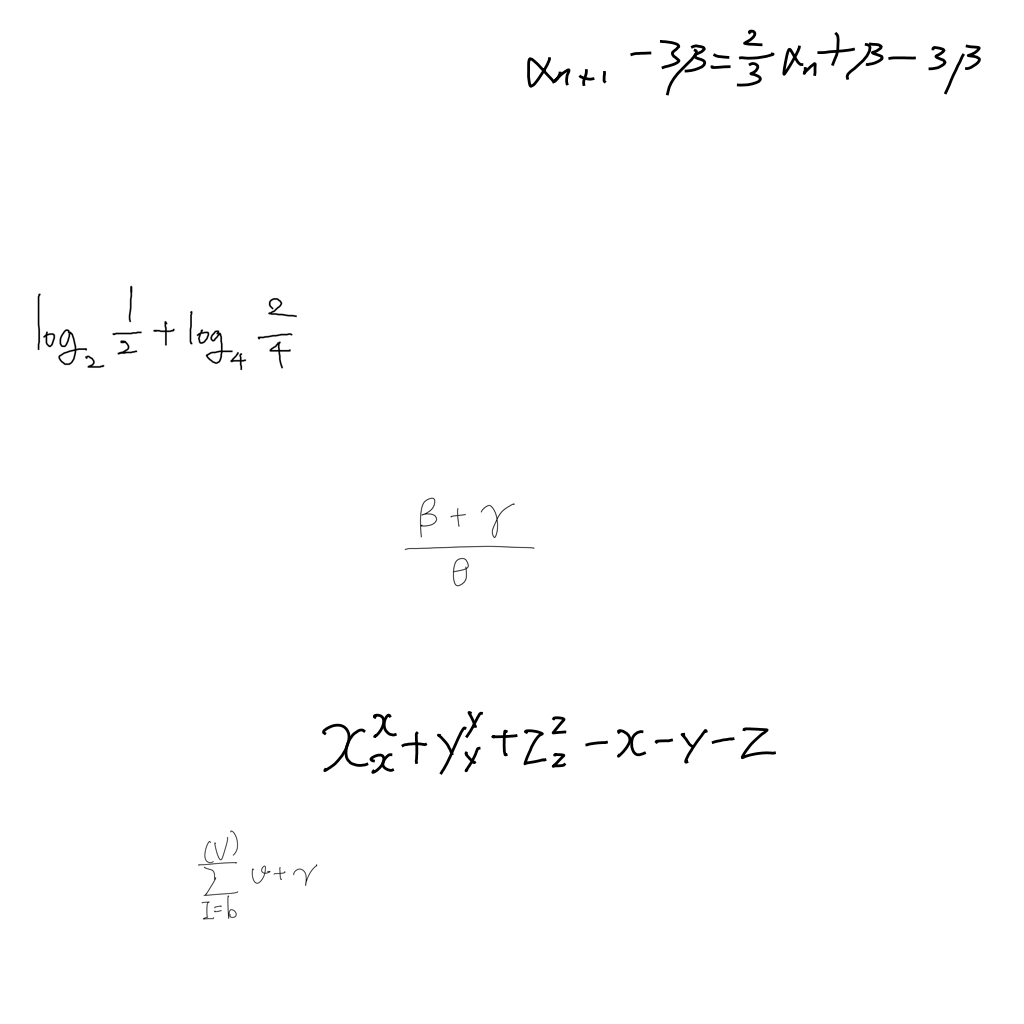 \alpha_{n+1} - 3\beta = \frac{2}{3} \alpha_n + \beta - 3\beta
\log_2 \frac{1}{2} + \log_4 \frac{2}{4}
\frac{\beta + \gamma}{\theta}
x_x^x + y_y^y + z_z^z - x - y - z
\sum_{I=b}^{(V)} v + \gamma